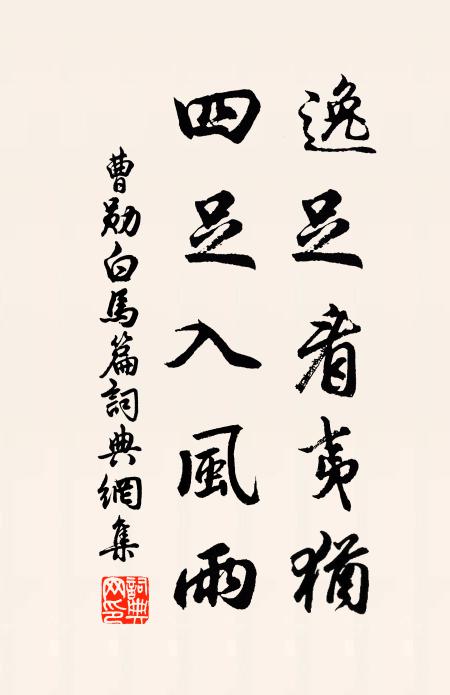 逸足看夷猶
四足入風雨
曹勛白馬篇詞典網集
詞典网印